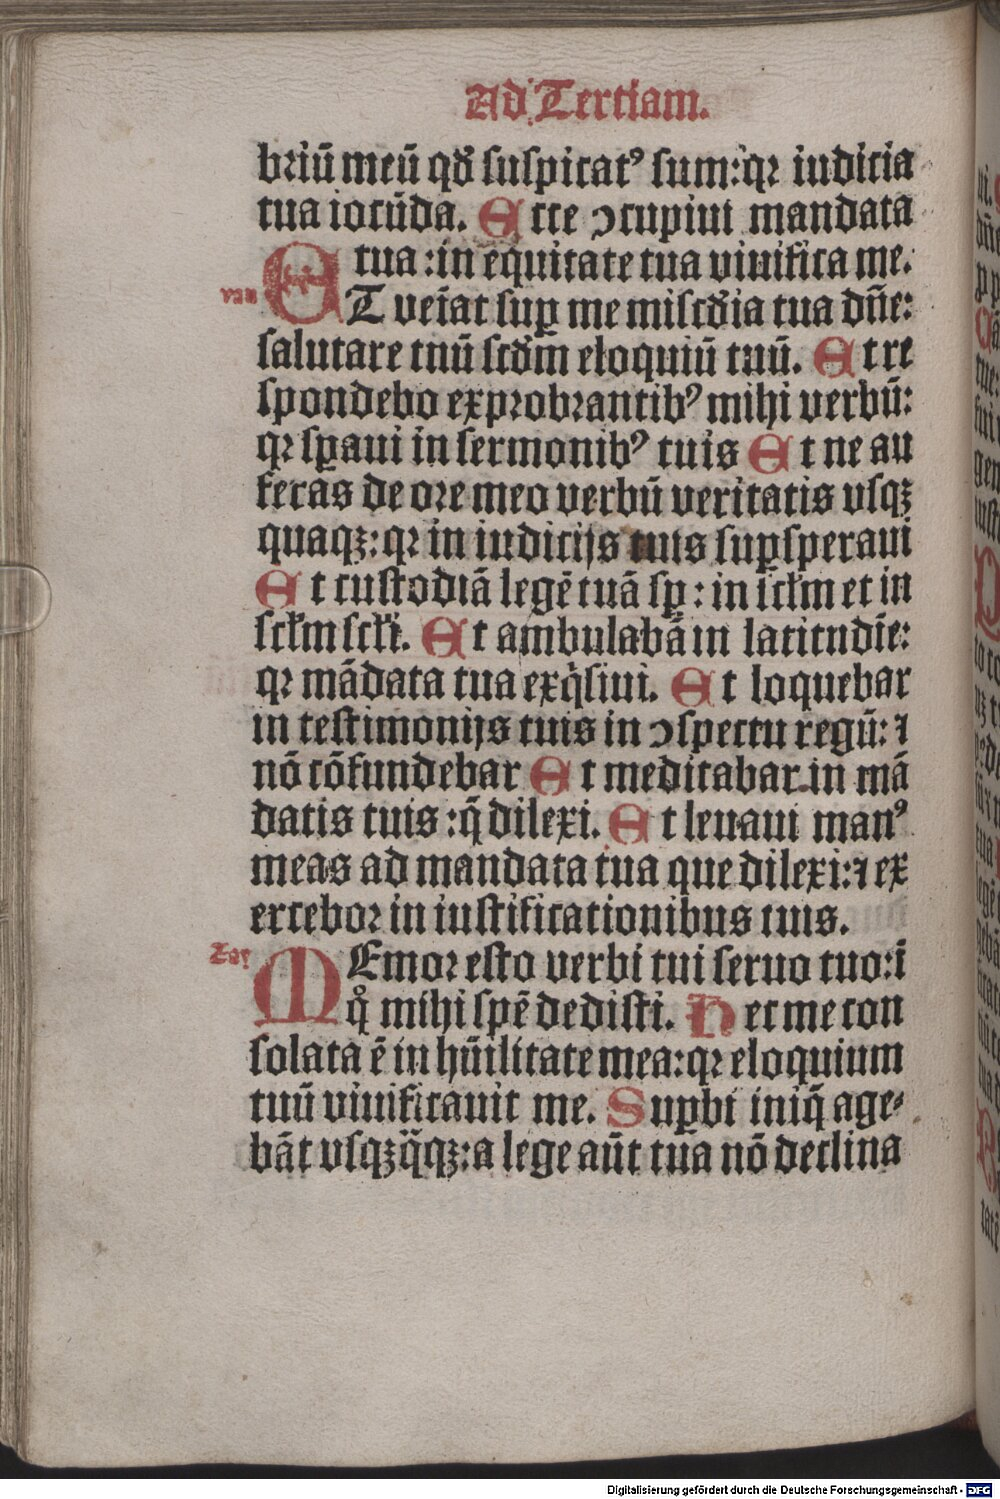 Ad Tertiam.
briū meū qď suspicatꝰ sum: qꝛ iudicia
tua iocūda. Ecce ↄcupiui mandata
tua: in equitate tua viuifica me.
vau
ET veīat suꝑ me miscďia tua dn̄e:
salutare tuū scďm eloquiū tuū. Et re
spondebo exprobrantibꝰ mihi verbū:
qꝛ sꝑaui in sermonibꝰ tuis Et ne au
feras de ore meo verbū veritatis vsqꝫ
quaqꝫ: qꝛ in iudicijs tuis suꝑsperaui
Et custodiā legē tuā sꝑ: in scl̄m et in
scl̄m scl̄i. Et ambulabā in latitudīe:
qꝛ mādata tua exq̇siui. Et loquebar
in testimonijs tuis in ↄspectu regū: ⁊
nō cōfundebar Et meditabar in mā
datis tuis: q̄ dilexi. Et leuaui manꝰ
meas ad mandata tua que dilexi: ⁊ ex
ercebor in iustificationibus tuis.
Zay
MEmor esto verbi tui seruo tuo: ī
qͦ mihi spē dedisti. Hec me con
solata ē in hūilitate mea: qꝛ eloquium
tuū viuificauit me. Suꝑbi iniq̄ age-
bāt vsqꝫq̄qꝫ: a lege aūt tua nō declina
Digitalisierung gefördert durch die Deutsche Forschungsgemeinschaft - DFG